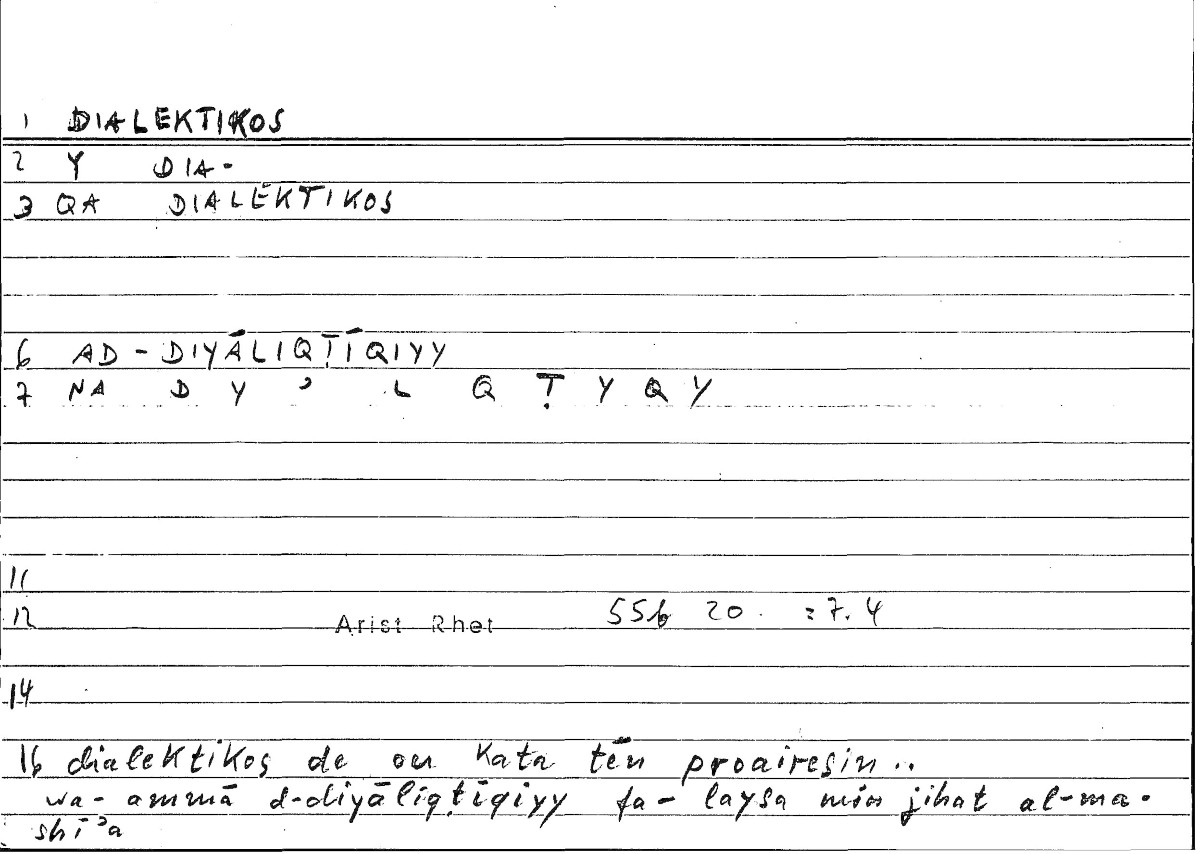 1 DIALEKTIKOS
2 Y DIA-
3 QA DIALEKTIKOS
6 AD-DIYĀLIQṬĪQIYY
7 NA D Y ʾ L Q Ṭ Y Q Y
11
12 Arist Rhet 55b 20. =7.4
14
16 dialektikos de ou kata tēn proairesin..
wa-ammā d-diyāliqṭīqiyy fa-laysa min jihat al-ma-
shīʾa